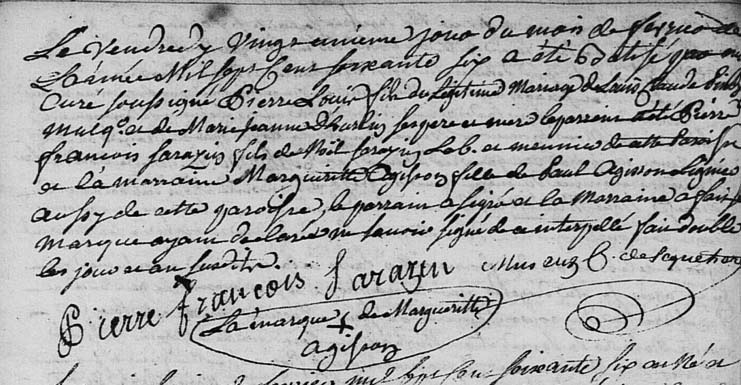 Le vendredy vingt unieme jour du mois de fevrier de
L'année Mil sept Cent soixante six a été Batisé par moi
Curé soussigné Pierre Louis fils du Legitime Mariage de Louis Claude
et de Marie Jeanne ses pere et mere le parrein a été Pierre
françois sarazin fils de Noil sarazin Lab. et meunier de cette Paroisse
et la marraine Margueritte Agisson fille de Paul Agisson
aussy de cette paroisse, le parrain a signé et la Marraine a fait sa
marque ayant declaré ne savoir signé de ce interpellé fait double
les jour et an susdits.
Pierre françois Sarazin
La marque + de Margueritte
agisson
mil sept Cent soixante six